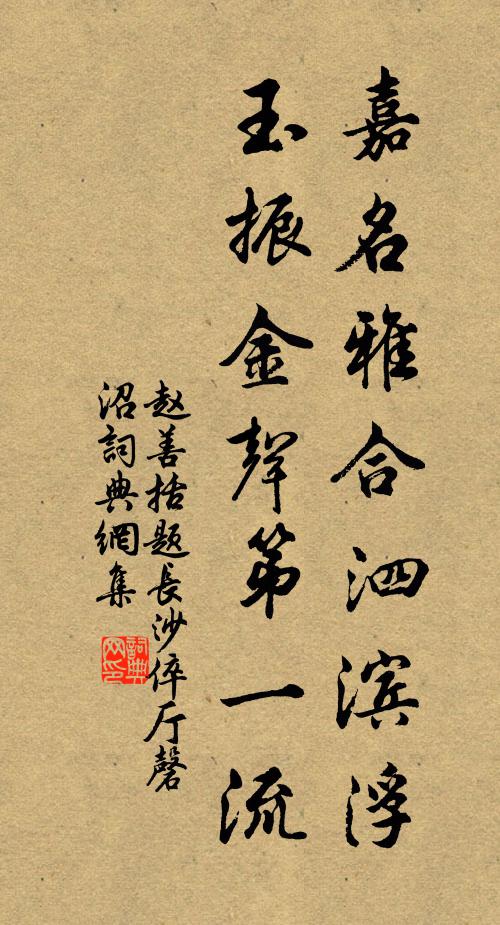 嘉名雅合泗滨浮
玉振金聲第一流
赵善括题長沙倅厅磬
沼詞典網集
詞典网印